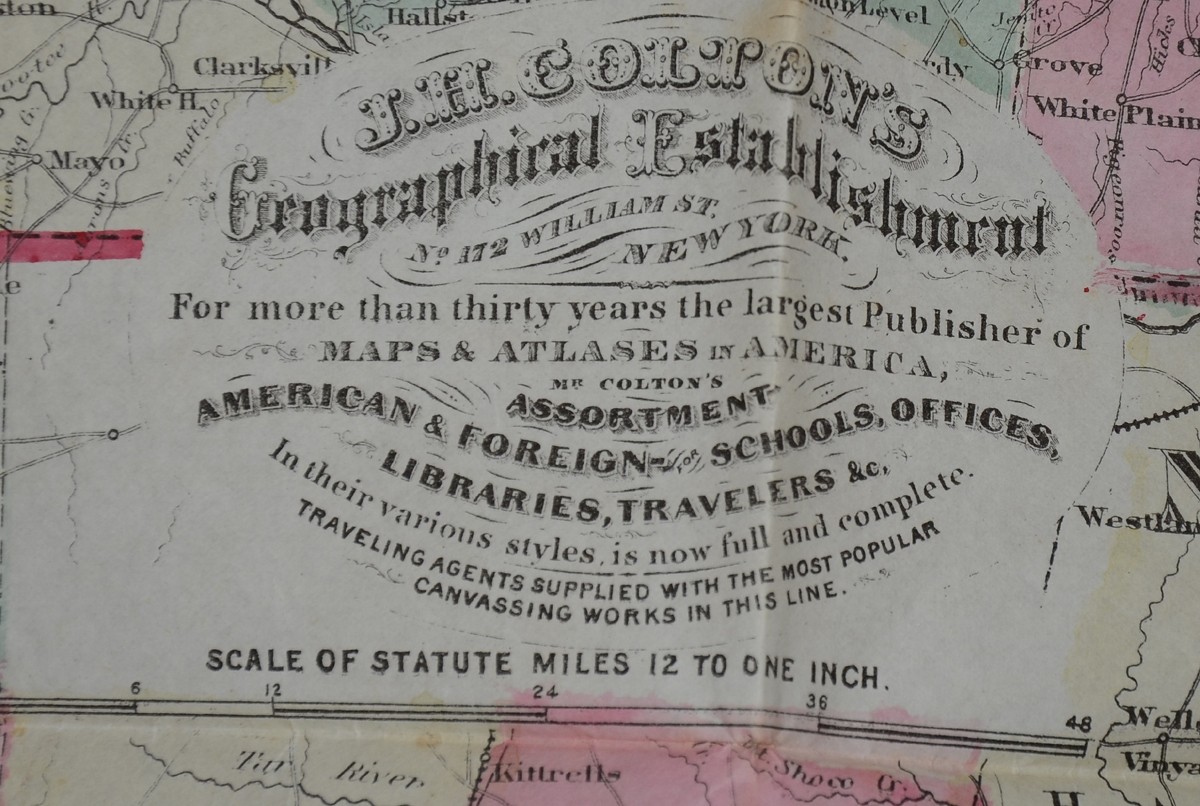 Hallst
Level
Clarksvill
Grove
Hicks
White H.
White Plain
Buffalo
Mayo
J.H. COLTON'S
Geographical Establishment
No 172 WILLIAM ST.
NEW YORK.
For more than thirty years the largest Publisher of
MAPS & ATLASES IN AMERICA,
MR COLTON'S
ASSORTMENT
AMERICAN & FOREIGN- for SCHOOLS, OFFICES,
LIBRARIES, TRAVELERS &c,
In their various styles, is now full and complete.
TRAVELING AGENTS SUPPLIED WITH THE MOST POPULAR
CANVASSING WORKS IN THIS LINE.
Westlan
SCALE OF STATUTE MILES 12 TO ONE INCH.
6 12 24 36 48
Wells
Vinya
Tar River
Kittrells
Shoco Cr.